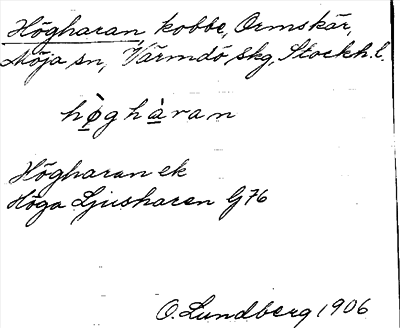 Högharan, kobbe, Ormskär,
Möja sn, Värmdö skg, Stockh. l.
hø̀ghàran
Högharan ek
Höga Ljusharen G76
O. Lundberg 1906